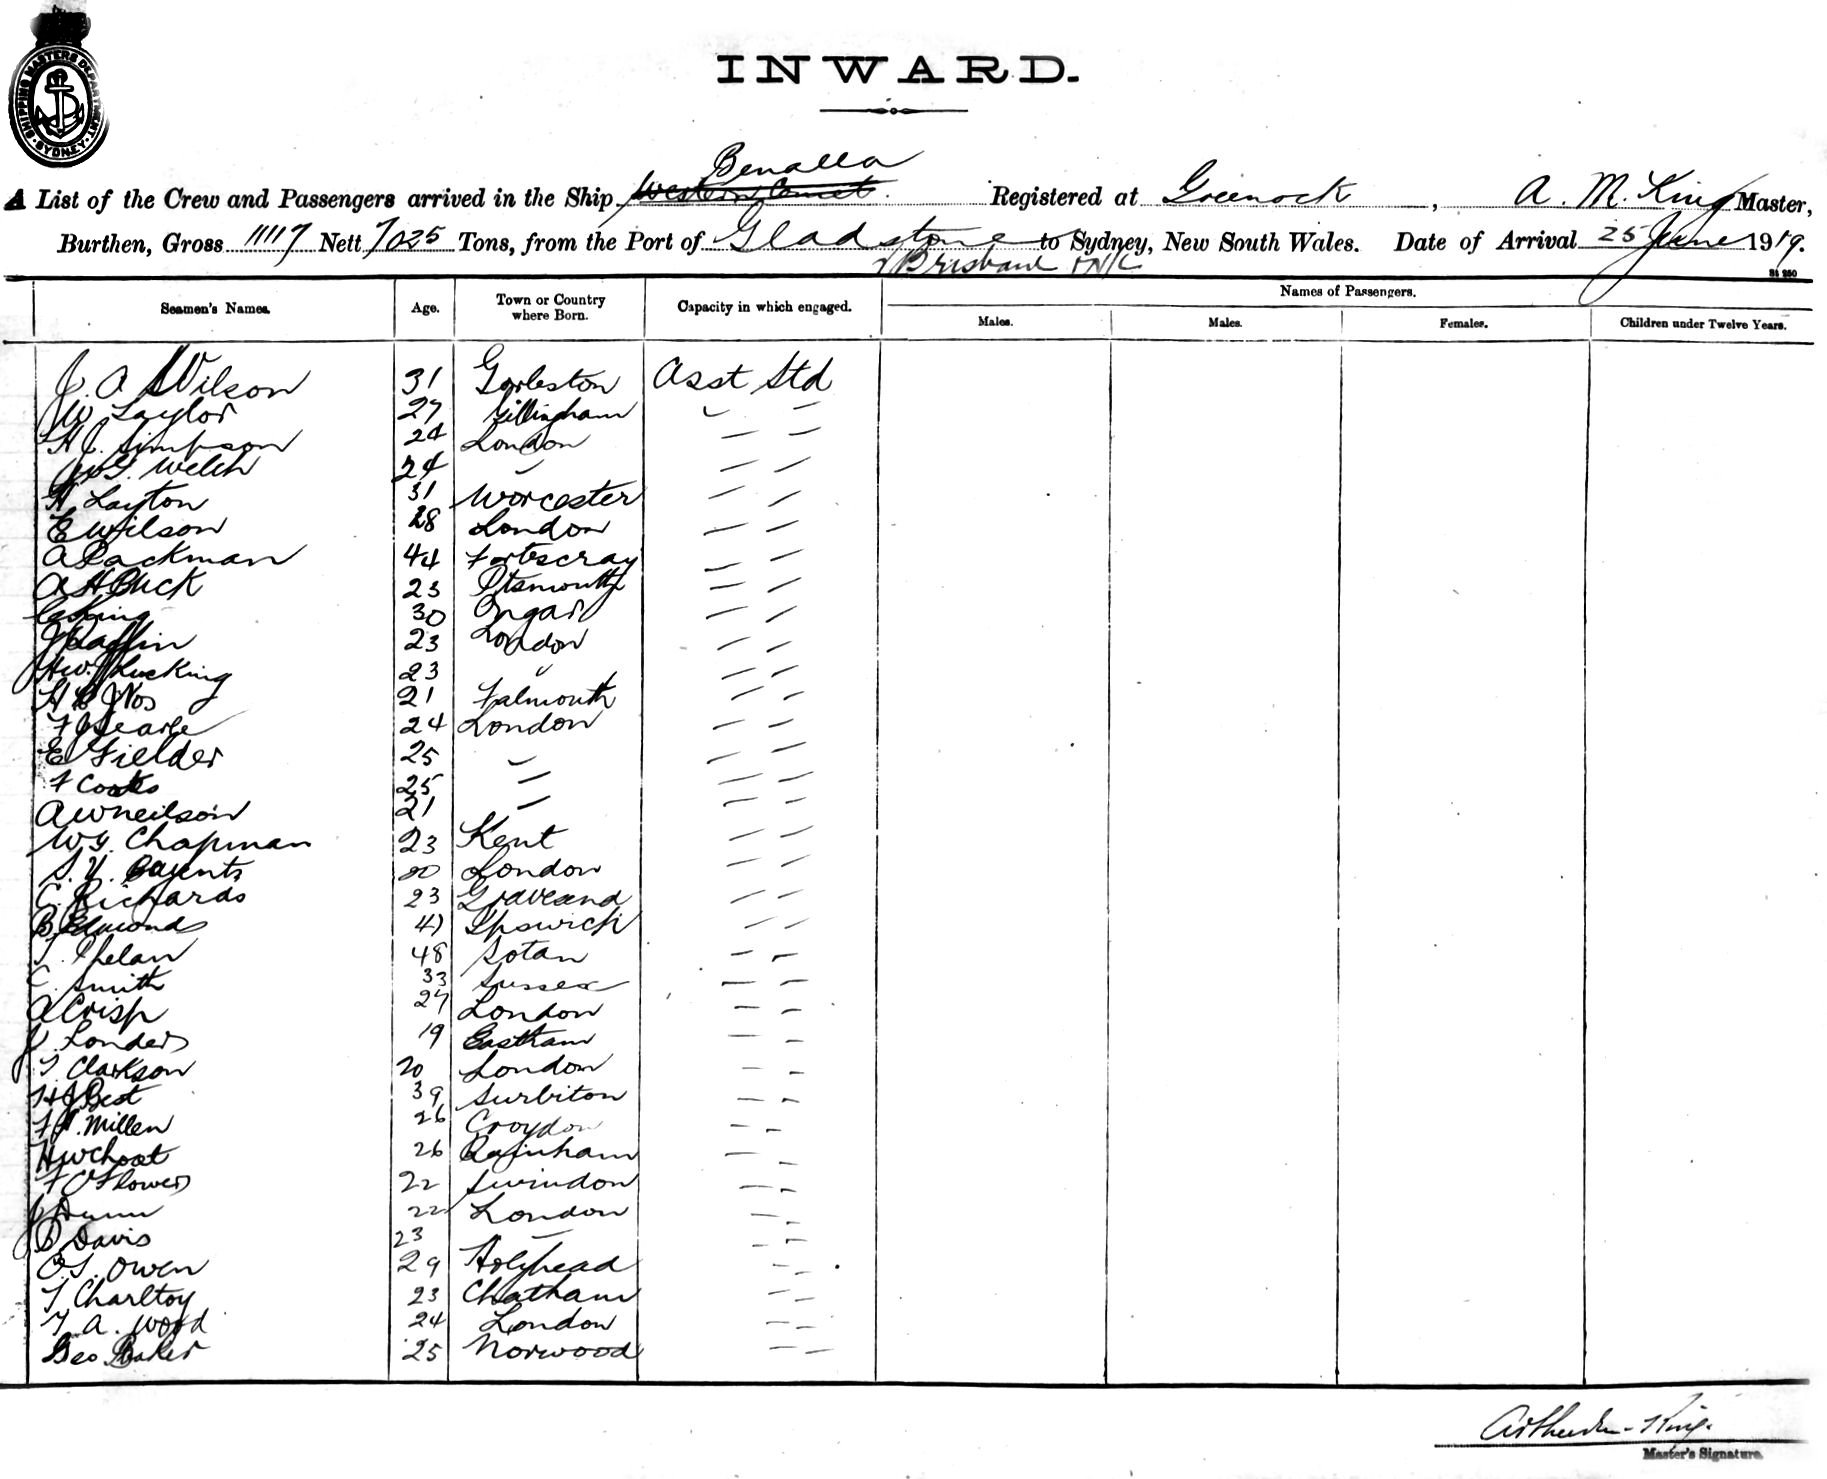 SHIPPING MASTERS DEPARTMENT
SYDNEY
INWARD.
Benalla
A List of the Crew and Passengers arrived in the Ship Registered at Greenock, A. M. King Master,
Burthen, Gross 11117 Nett 7025 Tons, from the Port of Gladstone to Sydney, New South Wales. Date of Arrival 25 June 1919.
Brisbane
Seamen's Names. Age. Town or Country where Born. Capacity in which engaged. Names of Passengers.
Males. Males. Females. Children under Twelve Years.
J. A Wilson 31 Gorleston Asst Std
W Taylor 27 Gillingham
H J. Simpson 24 London
G. Welch 24
H Layton 31 Worcester
E Wilson 28 London
A Packman 44
A H Buck 23 Ptsmouth
King 30 Ongar
J Laffin 23 London
HW Lucking 23 "
H 21 Falmouth
F Searle 24 London
E Fielder 25
F Coates 25
A W Neilson 21
W G. Chapman 23 Kent
S. 20 London
E. Richards 23 Gravesend
B Edmonds 41 Ipswich
T. Phelan 48
C. Smith 33 Sussex
A Crisp 27 London
J. Londer 19 Eastham
T Clarkson 20 London
H J Best 39 Surbiton
F J. Millen 26 Croydon
H W Choat 26 Rainham
F C Flower 22 Swindon
J Dunn 22 London
B Davis 23
O. T. Owen 29 Holyhead
T Charltoy 23 Chatham
T. A. Wood 24 London
Geo Baker 25 Norwood
King.
Master's Signature.